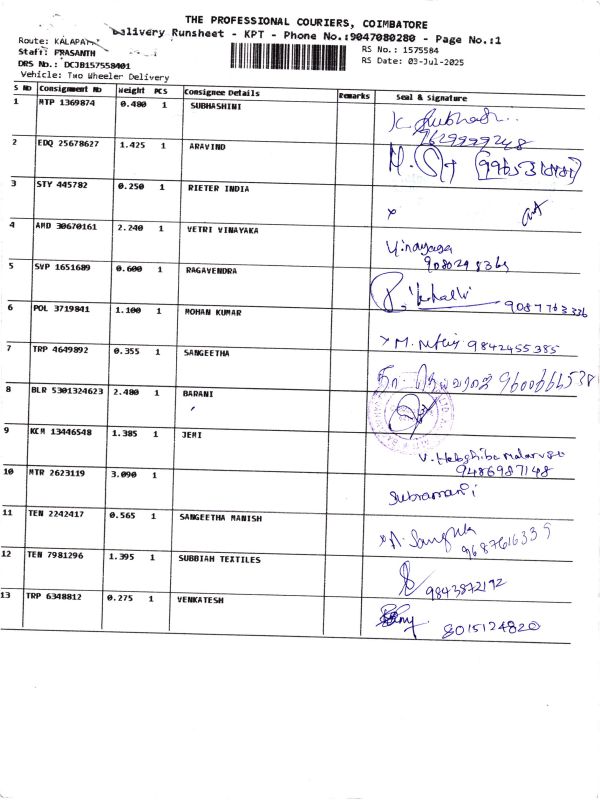 THE PROFESSIONAL COURIERS, COIMBATORE
Delivery Runsheet - KPT - Phone No.:9047080280 - Page No.:1
Route: KALAPATTI
RS No.: 1575584
Staff: PRASANTH
RS Date: 03-Jul-2025
DRS No.: DCJB157558401
Vehicle: Two Wheeler Delivery
S No Consignment No Weight PCS Consignee Details Remarks Seal & Signature
1 MTP 1369874 0.480 1 SUBHASHINI
9629999248
2 EDQ 25678627 1.425 1 ARAVIND
3 STY 445782 0.250 1 RIETER INDIA
4 AMD 30670161 2.240 1 VETRI VINAYAKA
Vinayaga
5 SVP 1651689 0.600 1 RAGAVENDRA
9087763336
6 POL 3719841 1.100 1 MOHAN KUMAR
9842455385
7 TRP 4649892 0.355 1 SANGEETHA
8 BLR 5301324623 2.480 1 BARANI
9 KCM 13446548 1.385 1 JEMI
9486987148
10 MTR 2623119 3.090 1
Subramani
11 TEN 2242417 0.565 1 SANGEETHA MANISH
12 TEN 7981296 1.395 1 SUBBIAH TEXTILES
9843872192
13 TRP 6348812 0.275 1 VENKATESH
8015124820